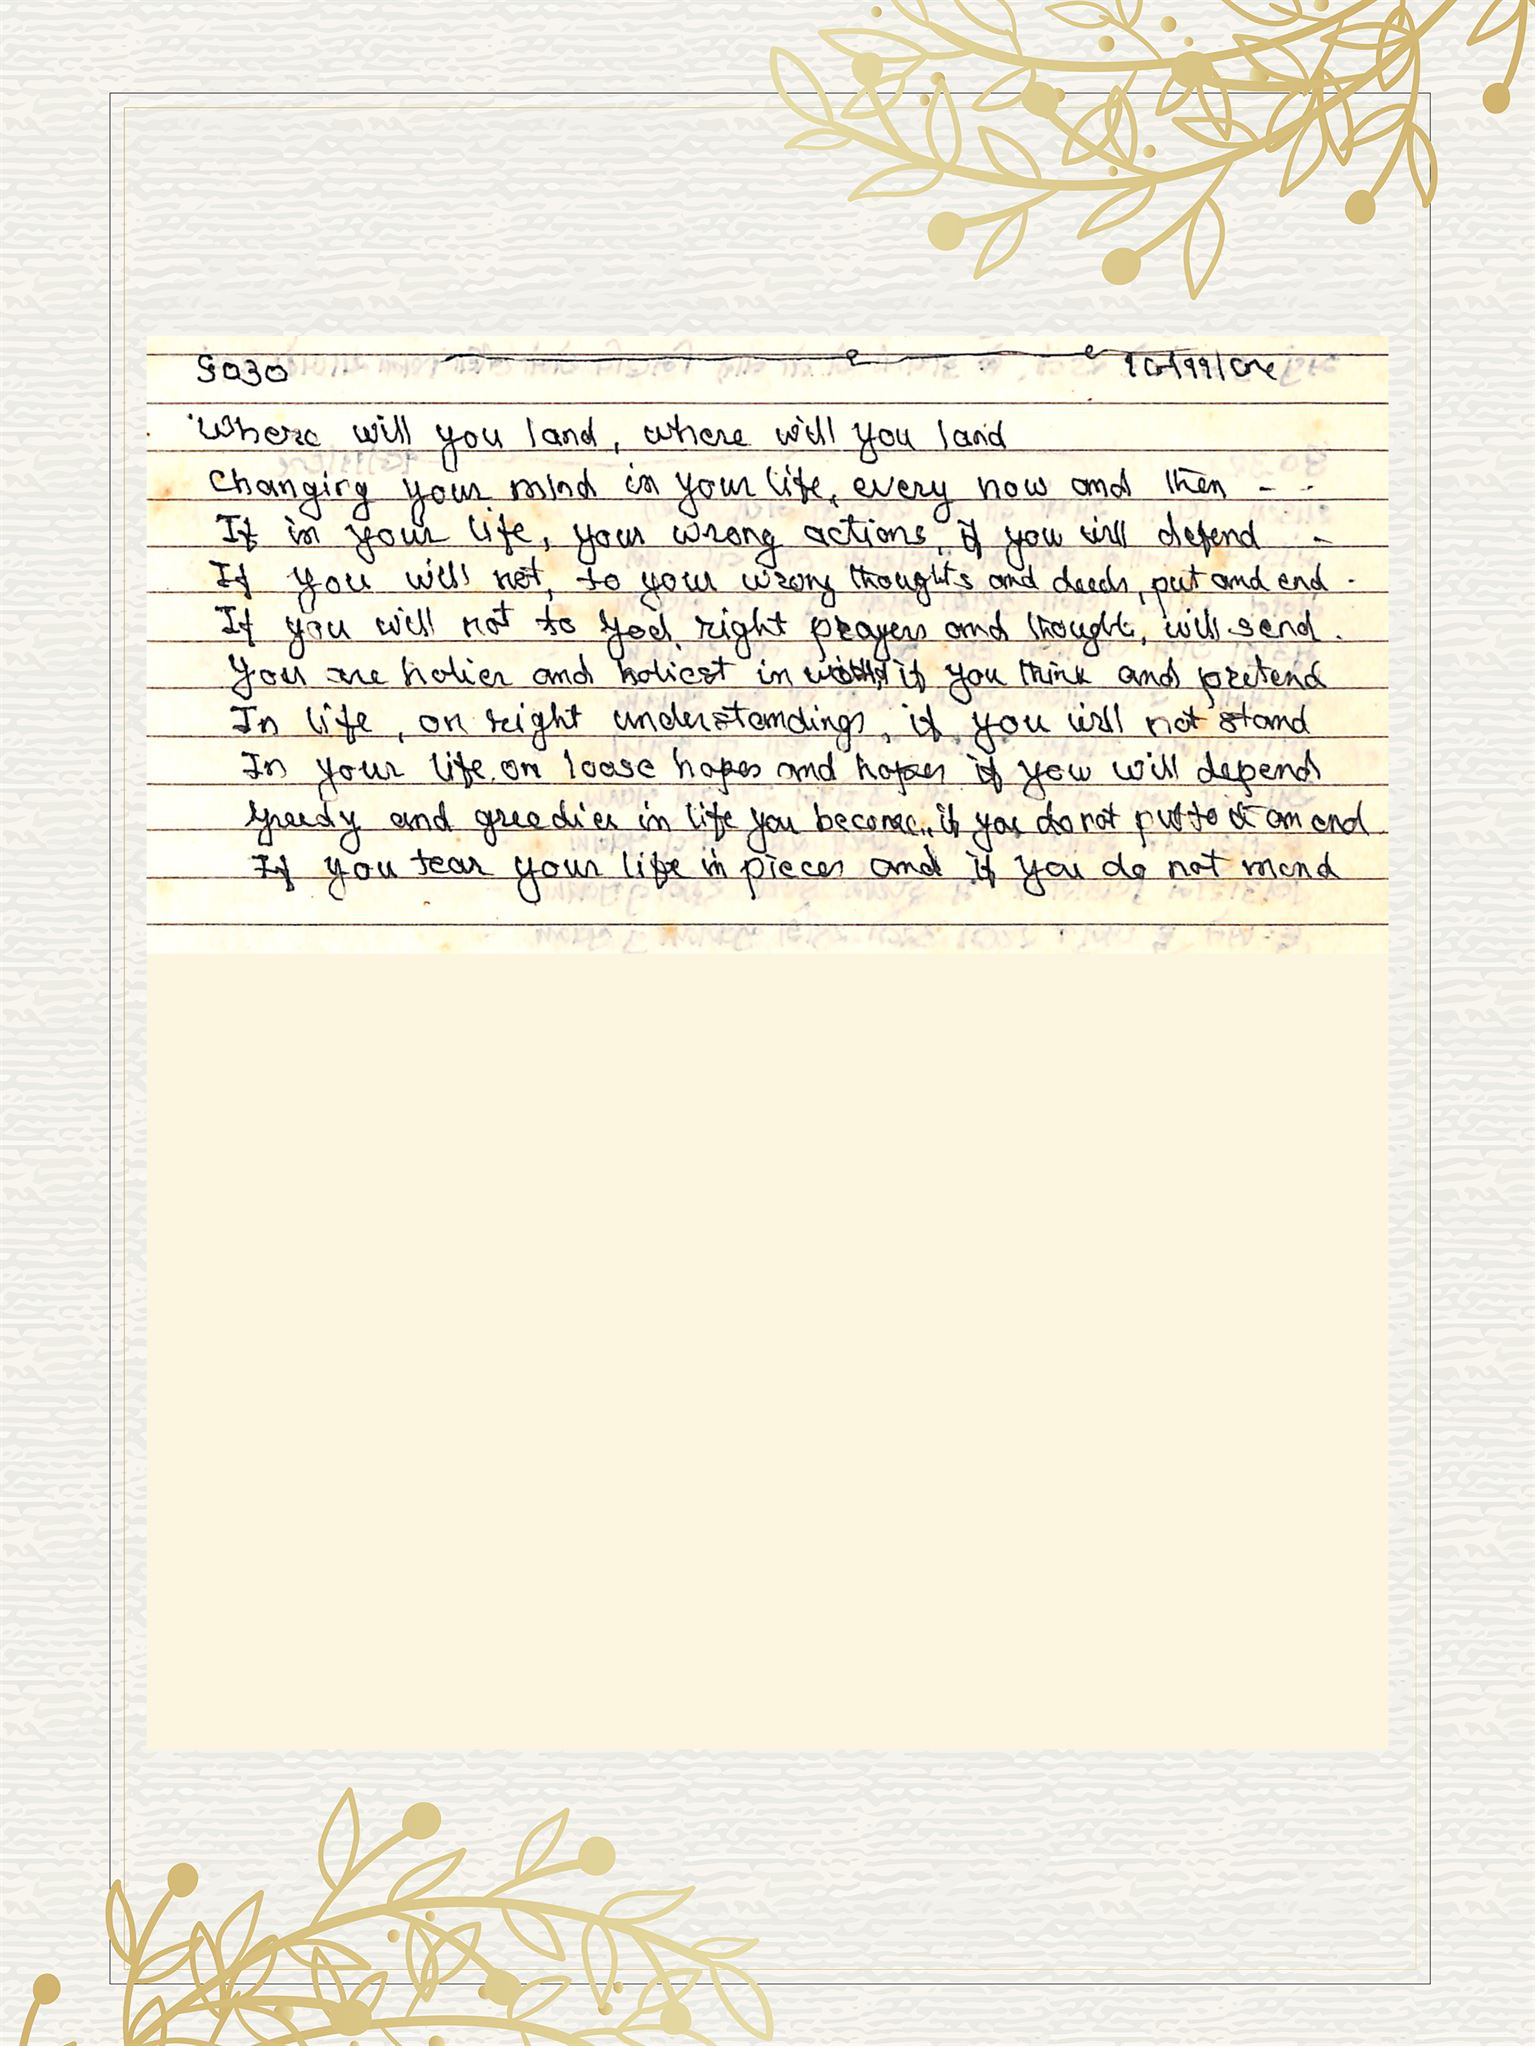 Where will you land, where will you land
Changing your mind in your life, every now and then - -
If in your life, your wrong actions, if you will defend -
If you will not, to your wrong thoughts and deeds, put and end.
If you will not to God, right prayers and thoughts, will send.
You are holier and holiest in if you think and pretend
In life, on right understandings, if you will not stand
In your life, on loose hopes and hopes if you will depend
Greedy and greedier in life you become, if you do not put to it an end
If you tear your life in pieces and if you do not mend